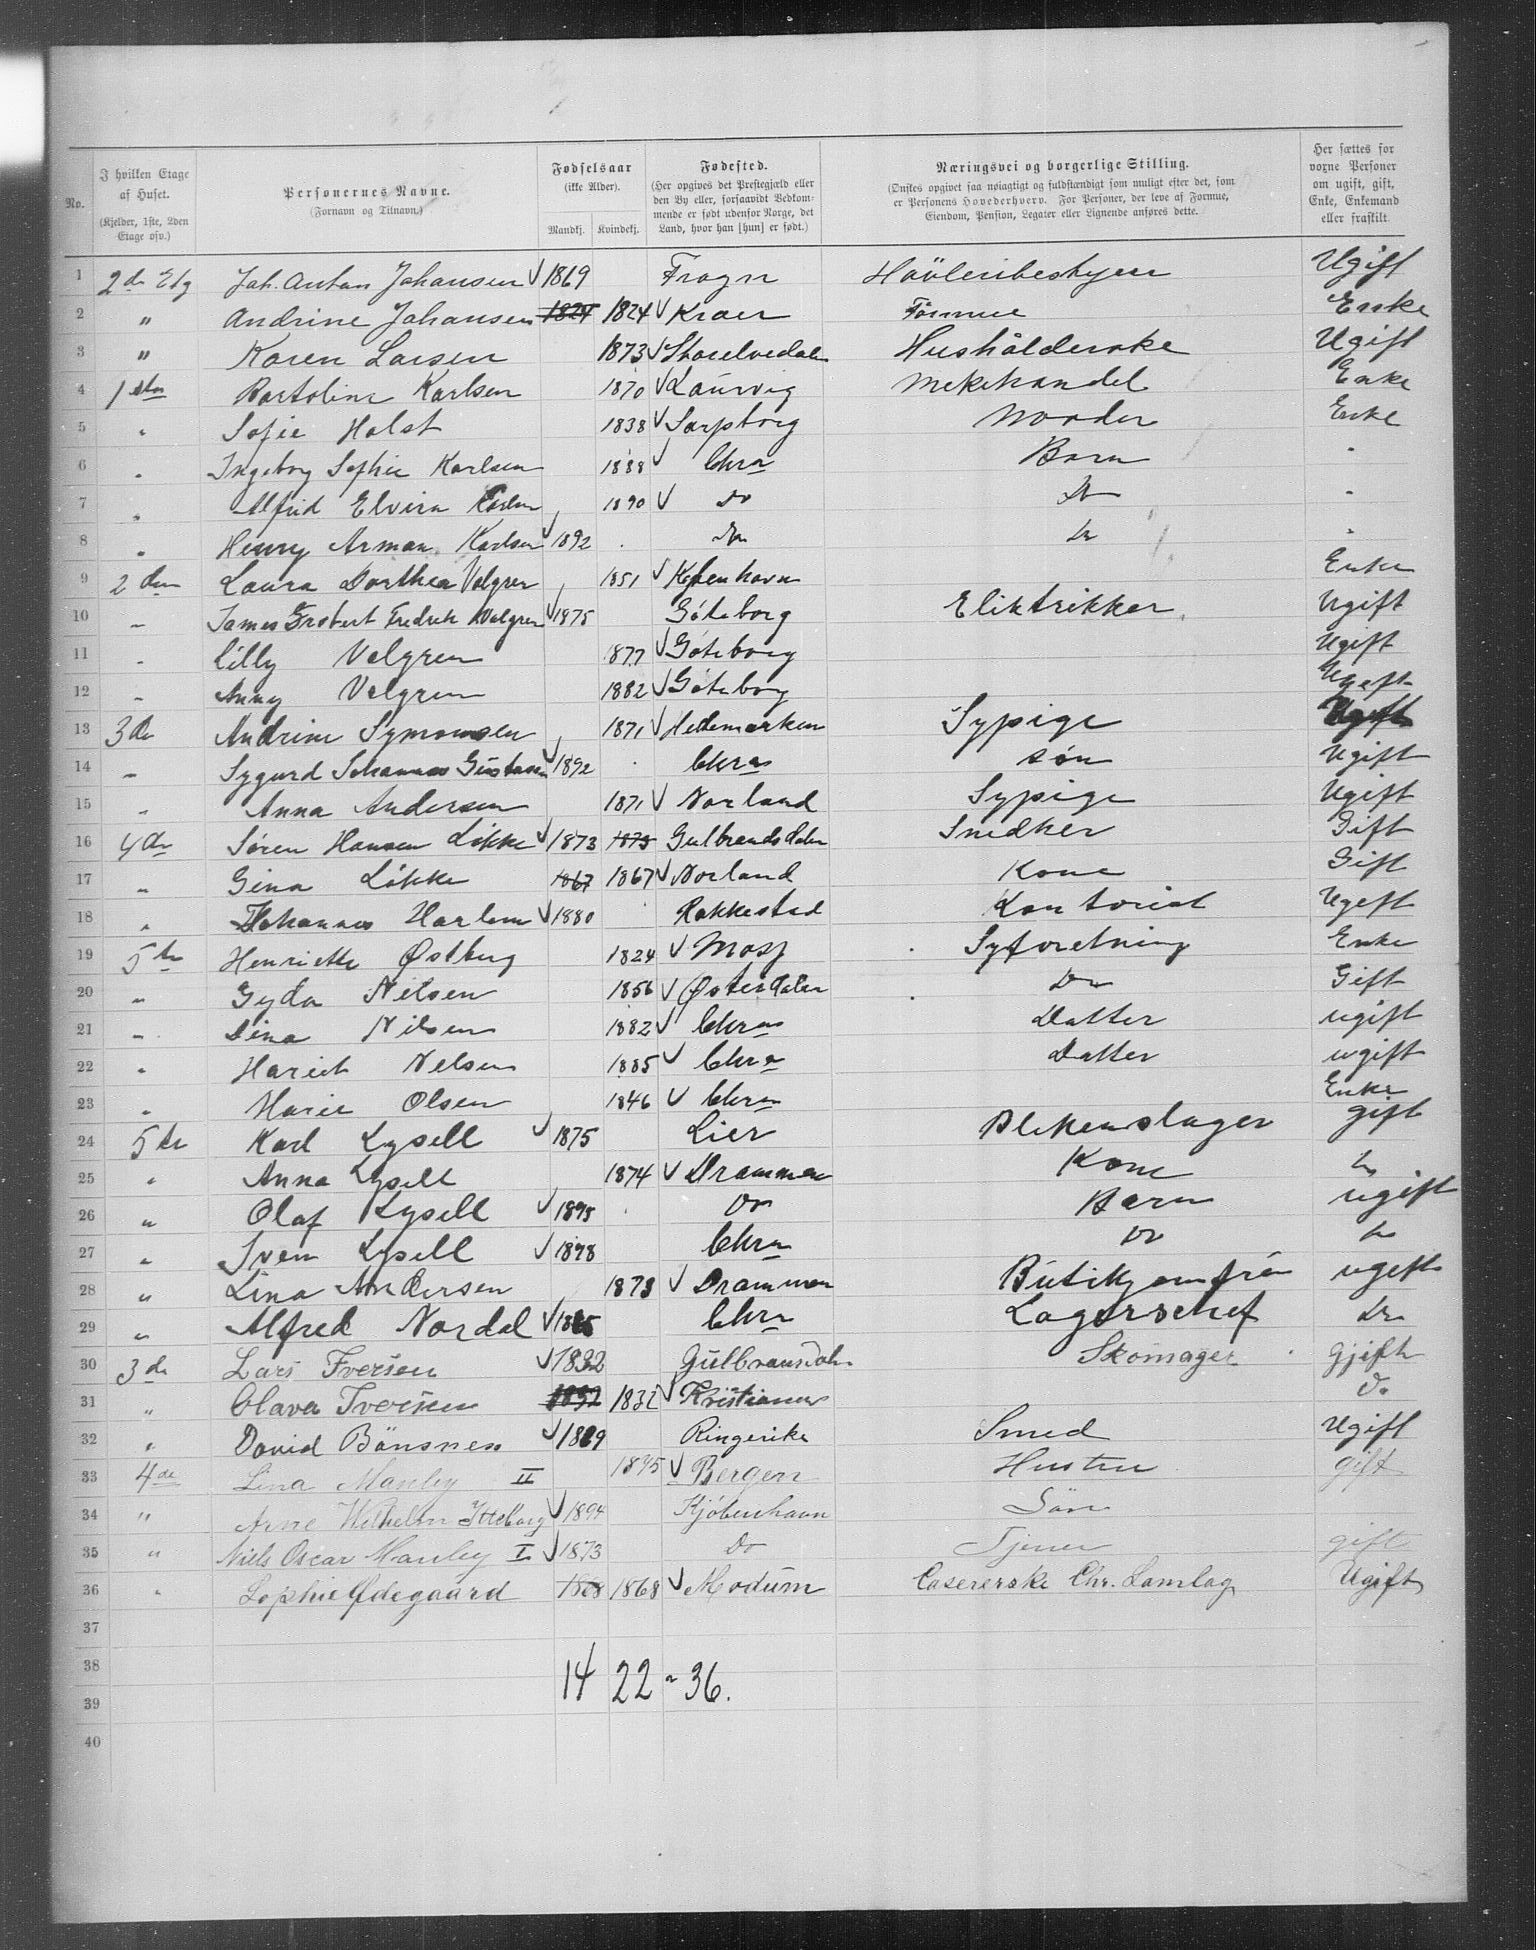 No.	I hvilken Etage af Huset. (Kjelder, 1ste, 2den Etage osv.)	Personernes Navne. (Fornavn og Tilnavn.)	Fødselsaar (ikke Alder). Mandkj. Kvindekj.	Fødested. (Her opgives det Prestegjæld eller den By eller, forsaavidt Vedkommende er født udenfor Norge, det Land, hvor han [hun] er født.)	Næringsvei og borgerlige Stilling. (Ønskes opgivet saa nøiagtigt og fuldstændigt som muligt efter det, som er Personens Hovederhverv. For Personer, der leve af Formue, Eiendom, Pension, Legater eller Lignende anføres dette.)	Her sættes for voxne Personer om ugift, gift, Enke, Enkemand eller fraskilt.
1 2de Etg Joh. Anton Johansen √ 1869 Frogn Ugift
2 " Andrine Johansen 1824 1824 √ Kraer Formue Enke
3 " Karen Larsen 1873 √ Storelvedalen Husholderske Ugift
4 1ste Bartoline Karlsen 1870 √ Laurvig Melkehandel Enke
5 " Sofie Holst 1838 √ Sarpsborg Moder Enke
6 " Ingeborg Sophie Karlsen 1888 √ Chra Barn "
7 " Alfrid Elvira Karlsen 1890 √ Do Do "
8 " Henry Arman Karlsen √ 1892 Do Do "
9 2den Laura Dorthea Valgren 1851 √ København Enke
10 " James Robert Fredrik Valgren √ 1875 Göteborg Eliktrikker Ugift
11 " Cilly Valgren 1877 √ Göteborg Ugift
12 " Anny Valgren 1882 √ Göteborg Ugift
13 3de Andrine Symonsen 1871 √ Hedemarken Sypige Ugift
14 " Sygurd Johannes Gustavsen √ 1892 Chra søn Ugift
15 " Anna Andersen 1871 √ Norland Sypige Ugift
16 4de Søren Hansen Løkke √ 1873 1873 Gulbrandsdalen Snedker Gift
17 " Gina Løkke 1867 1867 √ Norland Kone Gift
18 " Johannes Harlem √ 1880 Rakkestad Kontorist Ugift
19 5te Henriette Østberg 1824 √ Moss Syforetning Enke
20 " Gyda Nilsen 1856 √ Østerdalen Do Gift
21 " Dina Nilsen 1882 √ Chra Datter ugift
22 " Hariet Nelsen 1885 √ Chra Datter ugift
23 " Marie Olsen 1846 √ Chra Enke
24 5te Karl Lysell √ 1875 Lier Blikenslager gift
25 " Anna Lysell 1874 √ Drammen Kone Do
26 " Olaf Lysell √ 1895 Do Barn ugift
27 " Sven Lysell √ 1898 Chra Do Do
28 " Lina Andersen 1873 √ Drammen Butikjomfru ugift
29 " Alfred Nordal √ 1865 Chra Lagerschef Do
30 3de Lars Iversen √ 1832 Gulbransdalen Skomager Gjift
31 " Olava Iversen 1832 1832 √ Kristiania Do
32 " David Bönsnes √ 1869 Ringerike Smed Ugift
33 4de Lina Manley II 1875 √ Bergen Hustru gift
34 " Arne Wilhelm Itteborg √ 1894 Kjøbenhavn Søn
35 " Niels Oscar Manley I √ 1873 Do Tjener gift
36 " Sophie Ødegaard 1868 1868 √ Modum Casererske Chr. Samlag Ugift
37
38 14 22 = 36.
39
40